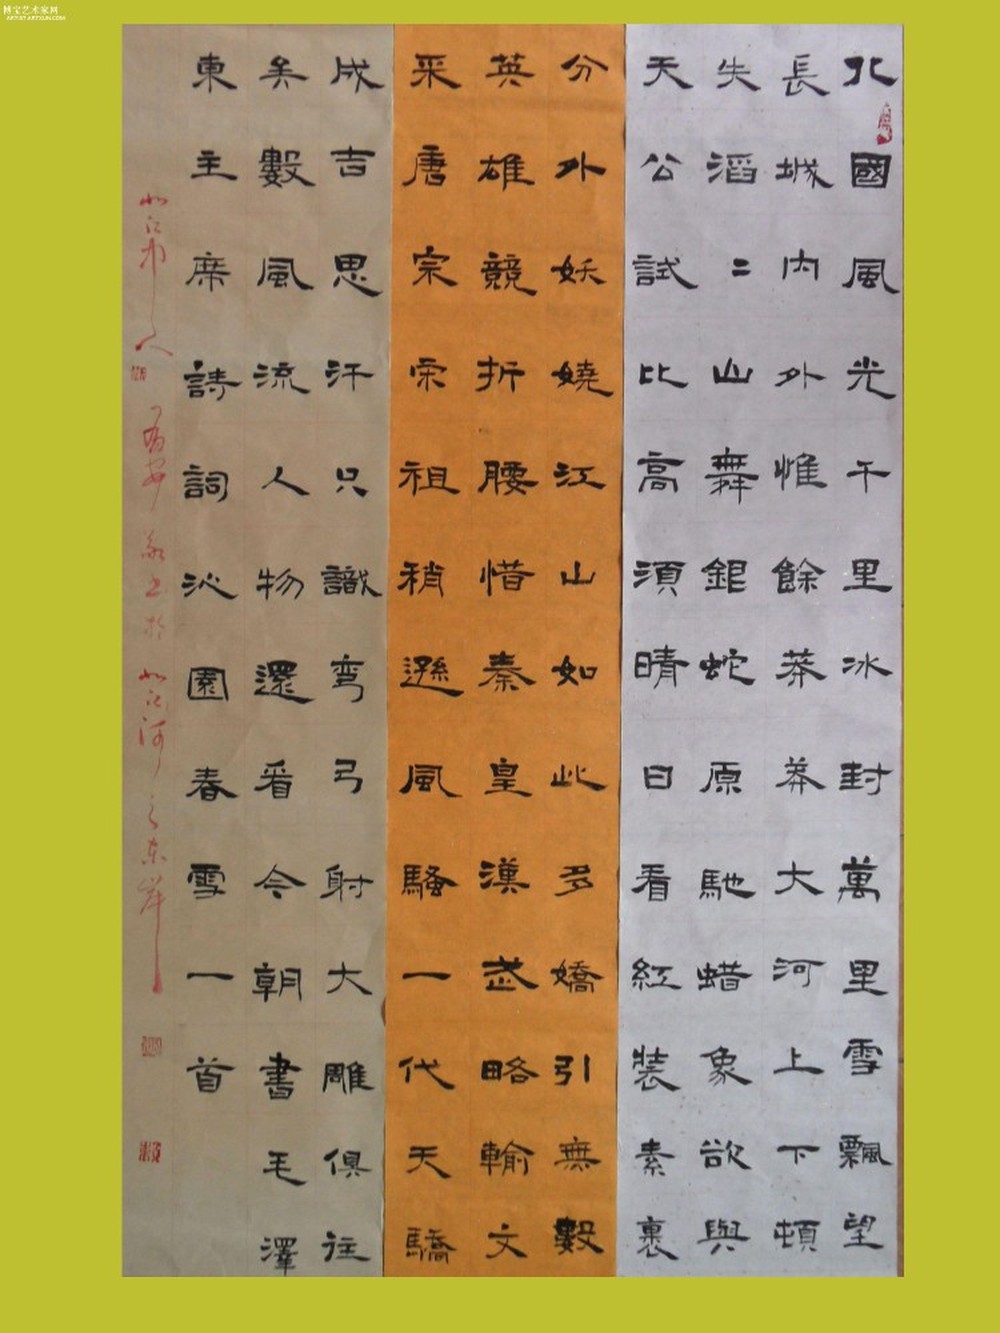 博宝艺术家网
ARTIST.ARTXUN.COM
北國風光千里冰封萬里雪飄望
長城内外惟餘莽莽大河上下頓
失滔〻山舞銀蛇原馳蜡象欲與
天公試比高須晴日看紅裝素裹
分外妖嬈江山如此多嬌引無數
英雄競折腰惜秦皇漢武略輸文
采唐宗宋祖稍遜風騷一代天驕
成吉思汗只識弯弓射大雕俱往
矣數風流人物還看今朝書毛澤
東主席詩詞沁園春雪一首